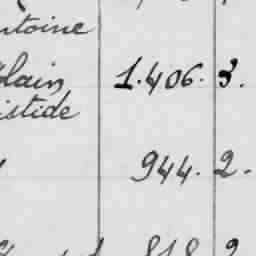 ntoine
lain 1.406. 3.
istide
944. 2.
818 2